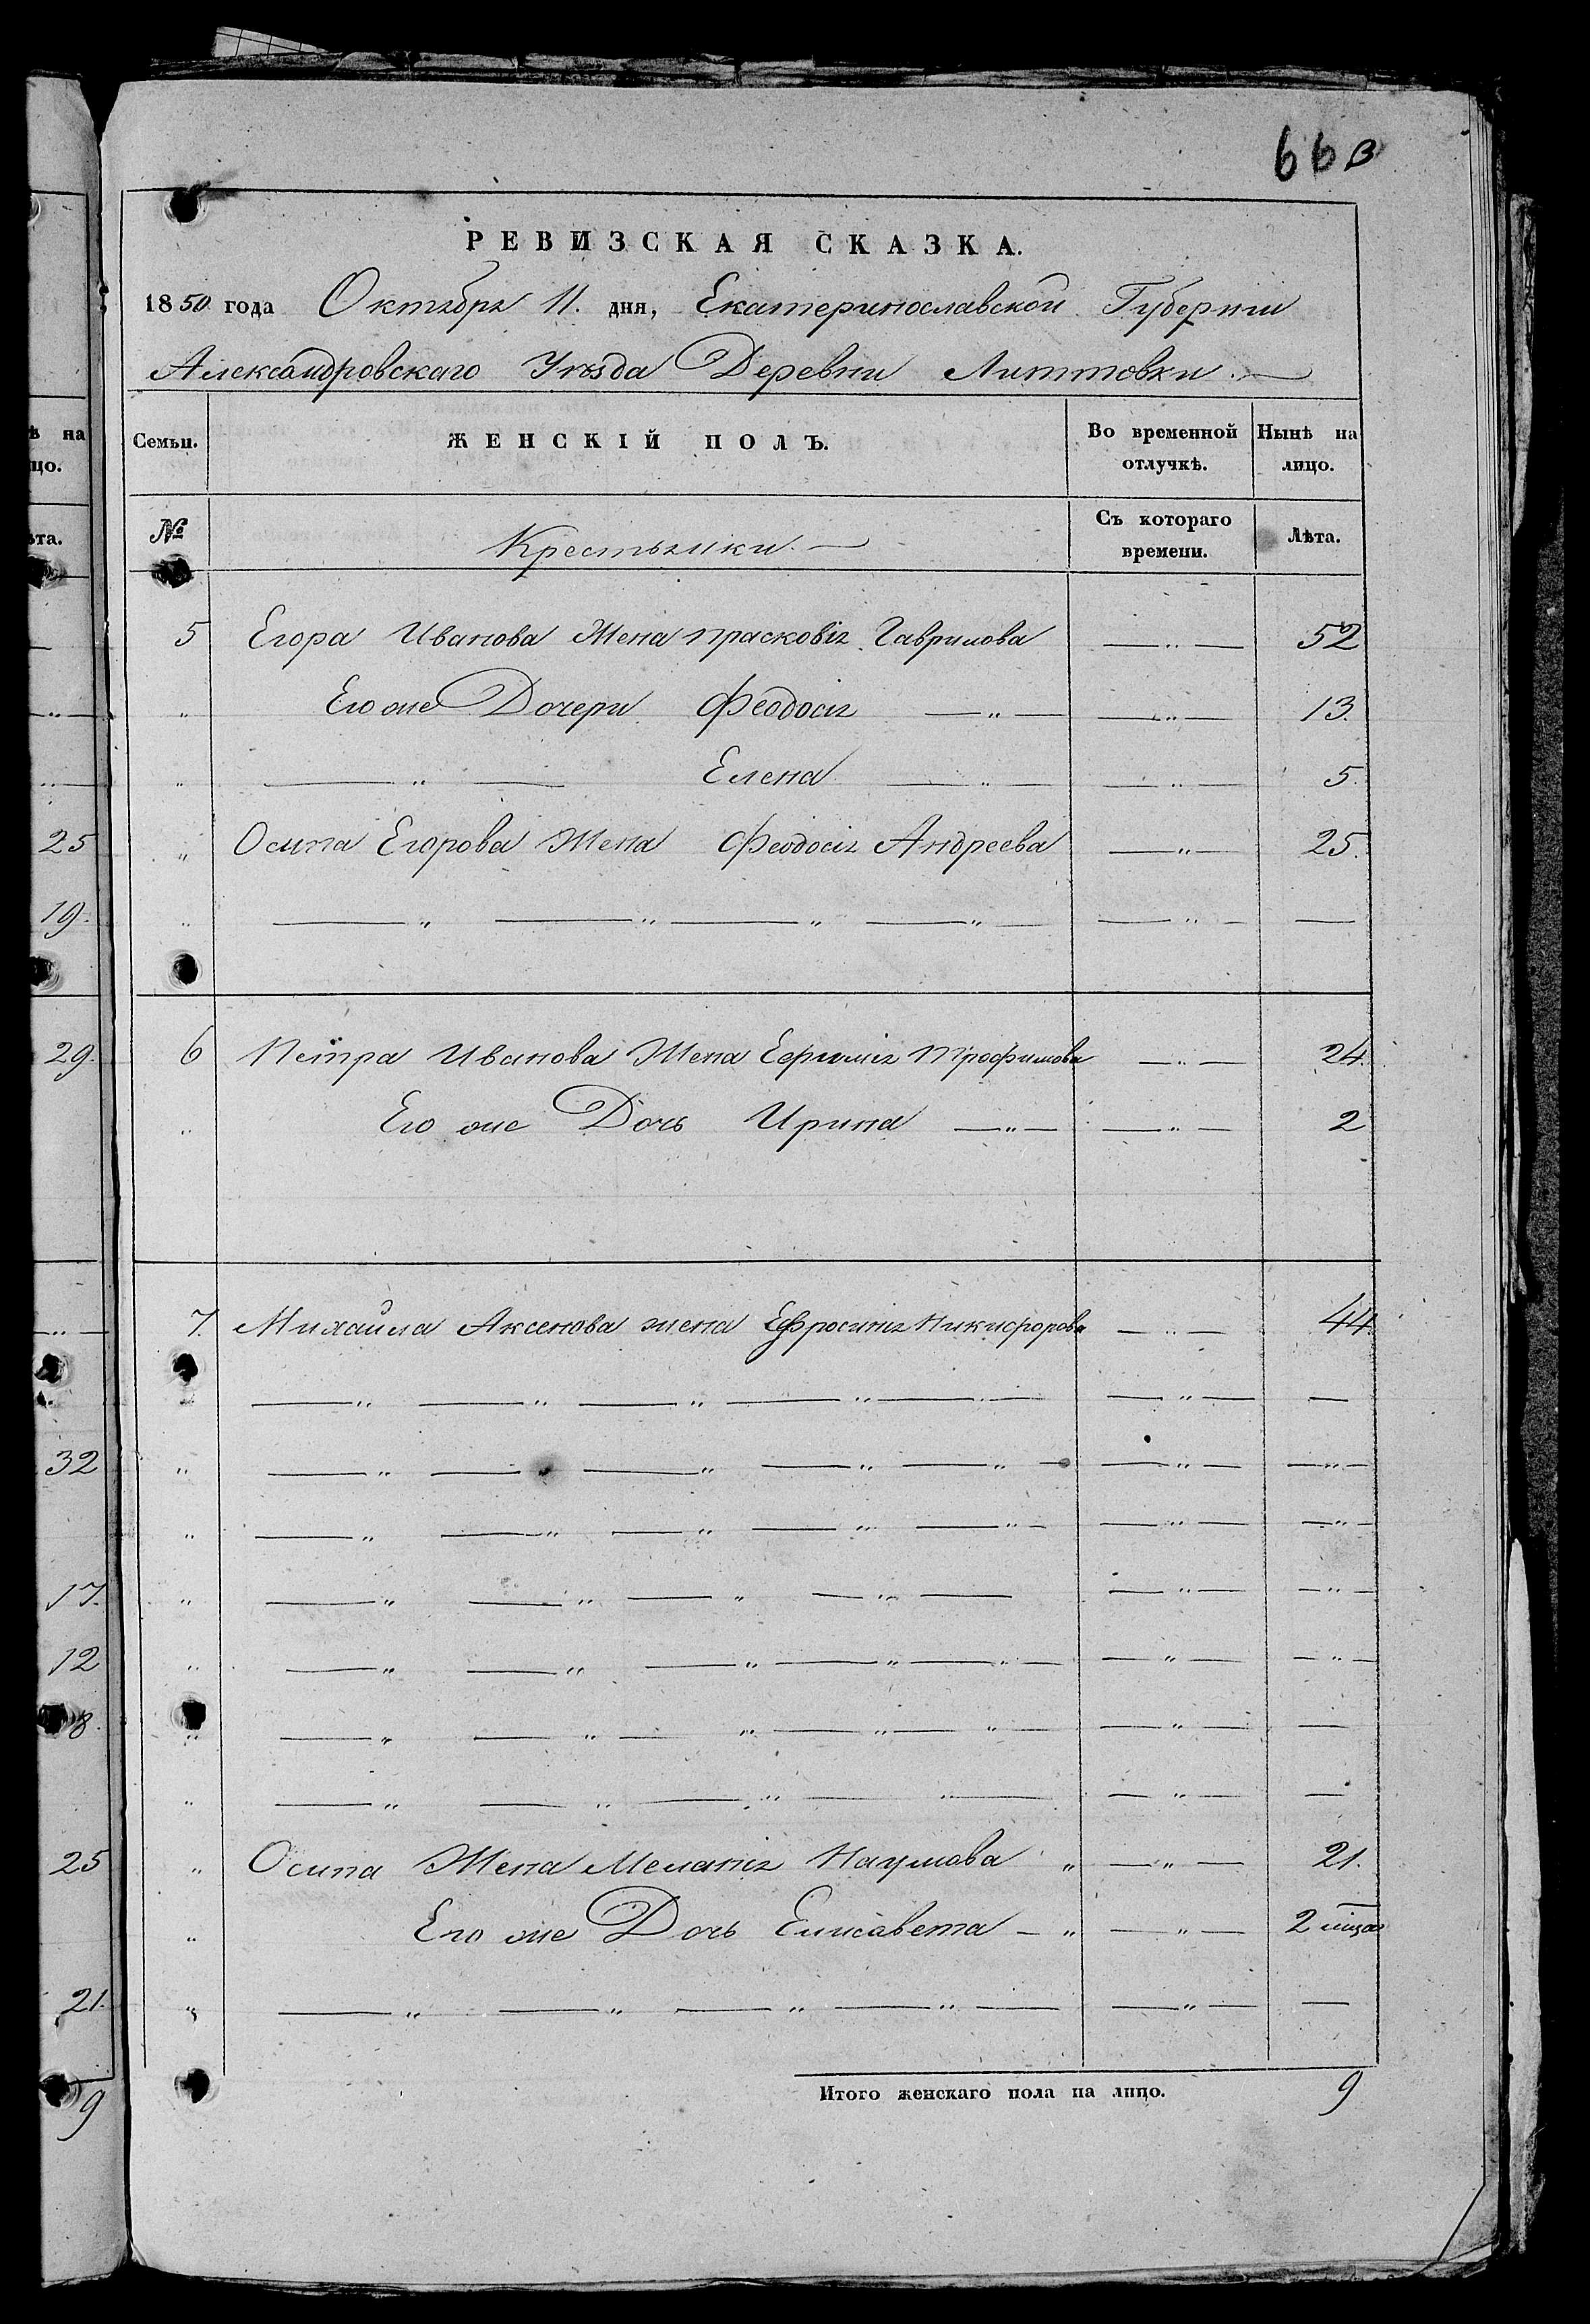 66 в
РЕВИЗСКАЯ СКАЗКА.
1850 года Октября 11. дня, Екатеринославской Губернiи
Александровскаго Уѣзда Деревни Литтовки
ѣ на
цо.
Семьи.
ЖЕНСКIЙ ПОЛЪ.
Во временной отлучкѣ.
Нынѣ на лицо.
ѣта.
№
Крестьянки.
Съ котораго времени.
Лѣта.
5 Егора Иванова Жена Прасковiя Гаврилова —"— 52
" Его же Дочери Феодосiя —"— —"— 13.
" —"— Елена —"— —"— 5.
25 " Осипа Егорова Жена Феодосiя Андреева —"— 25.
19. " —" —" —" —"— —"— —
29. 6 Петра Иванова Жена Ефимiя Трофимова —"— 24.
" Его же Дочь Ирина —"— —"— 2
7. Михайла Аксенова жена Ефросинiя Никифорова —"— 44
—" —" —" —"— —"— —
32 " —" —" —" —" —"— —"— —"—
" —" —" —" —" —"— —"— —"—
17. " —" —" —" —"— —"— —"—
12 " —" —" —" —" —"— —"— —"—
8. " —" —" —" —" —"— —"— —
" —" —" —" —"— —"— —
25 " Осипа Жена Меланiя Наумова " —"— 21.
" Его же Дочь Елисавета —" —"— 2 мѣсяц
21. " —" —" —" —"— —"— —
9
Итого женскаго пола на лицо. 9